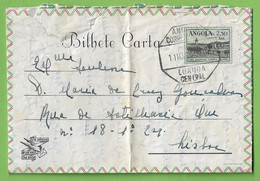 Bilhete Carta
ANGOLA 2,50
LUANDA
CENTRAL
Exma
Senhora
D. Maria da Cruz Goncalves
Rua de Artilharia Um
nº 18-1º Esq.
Lisboa